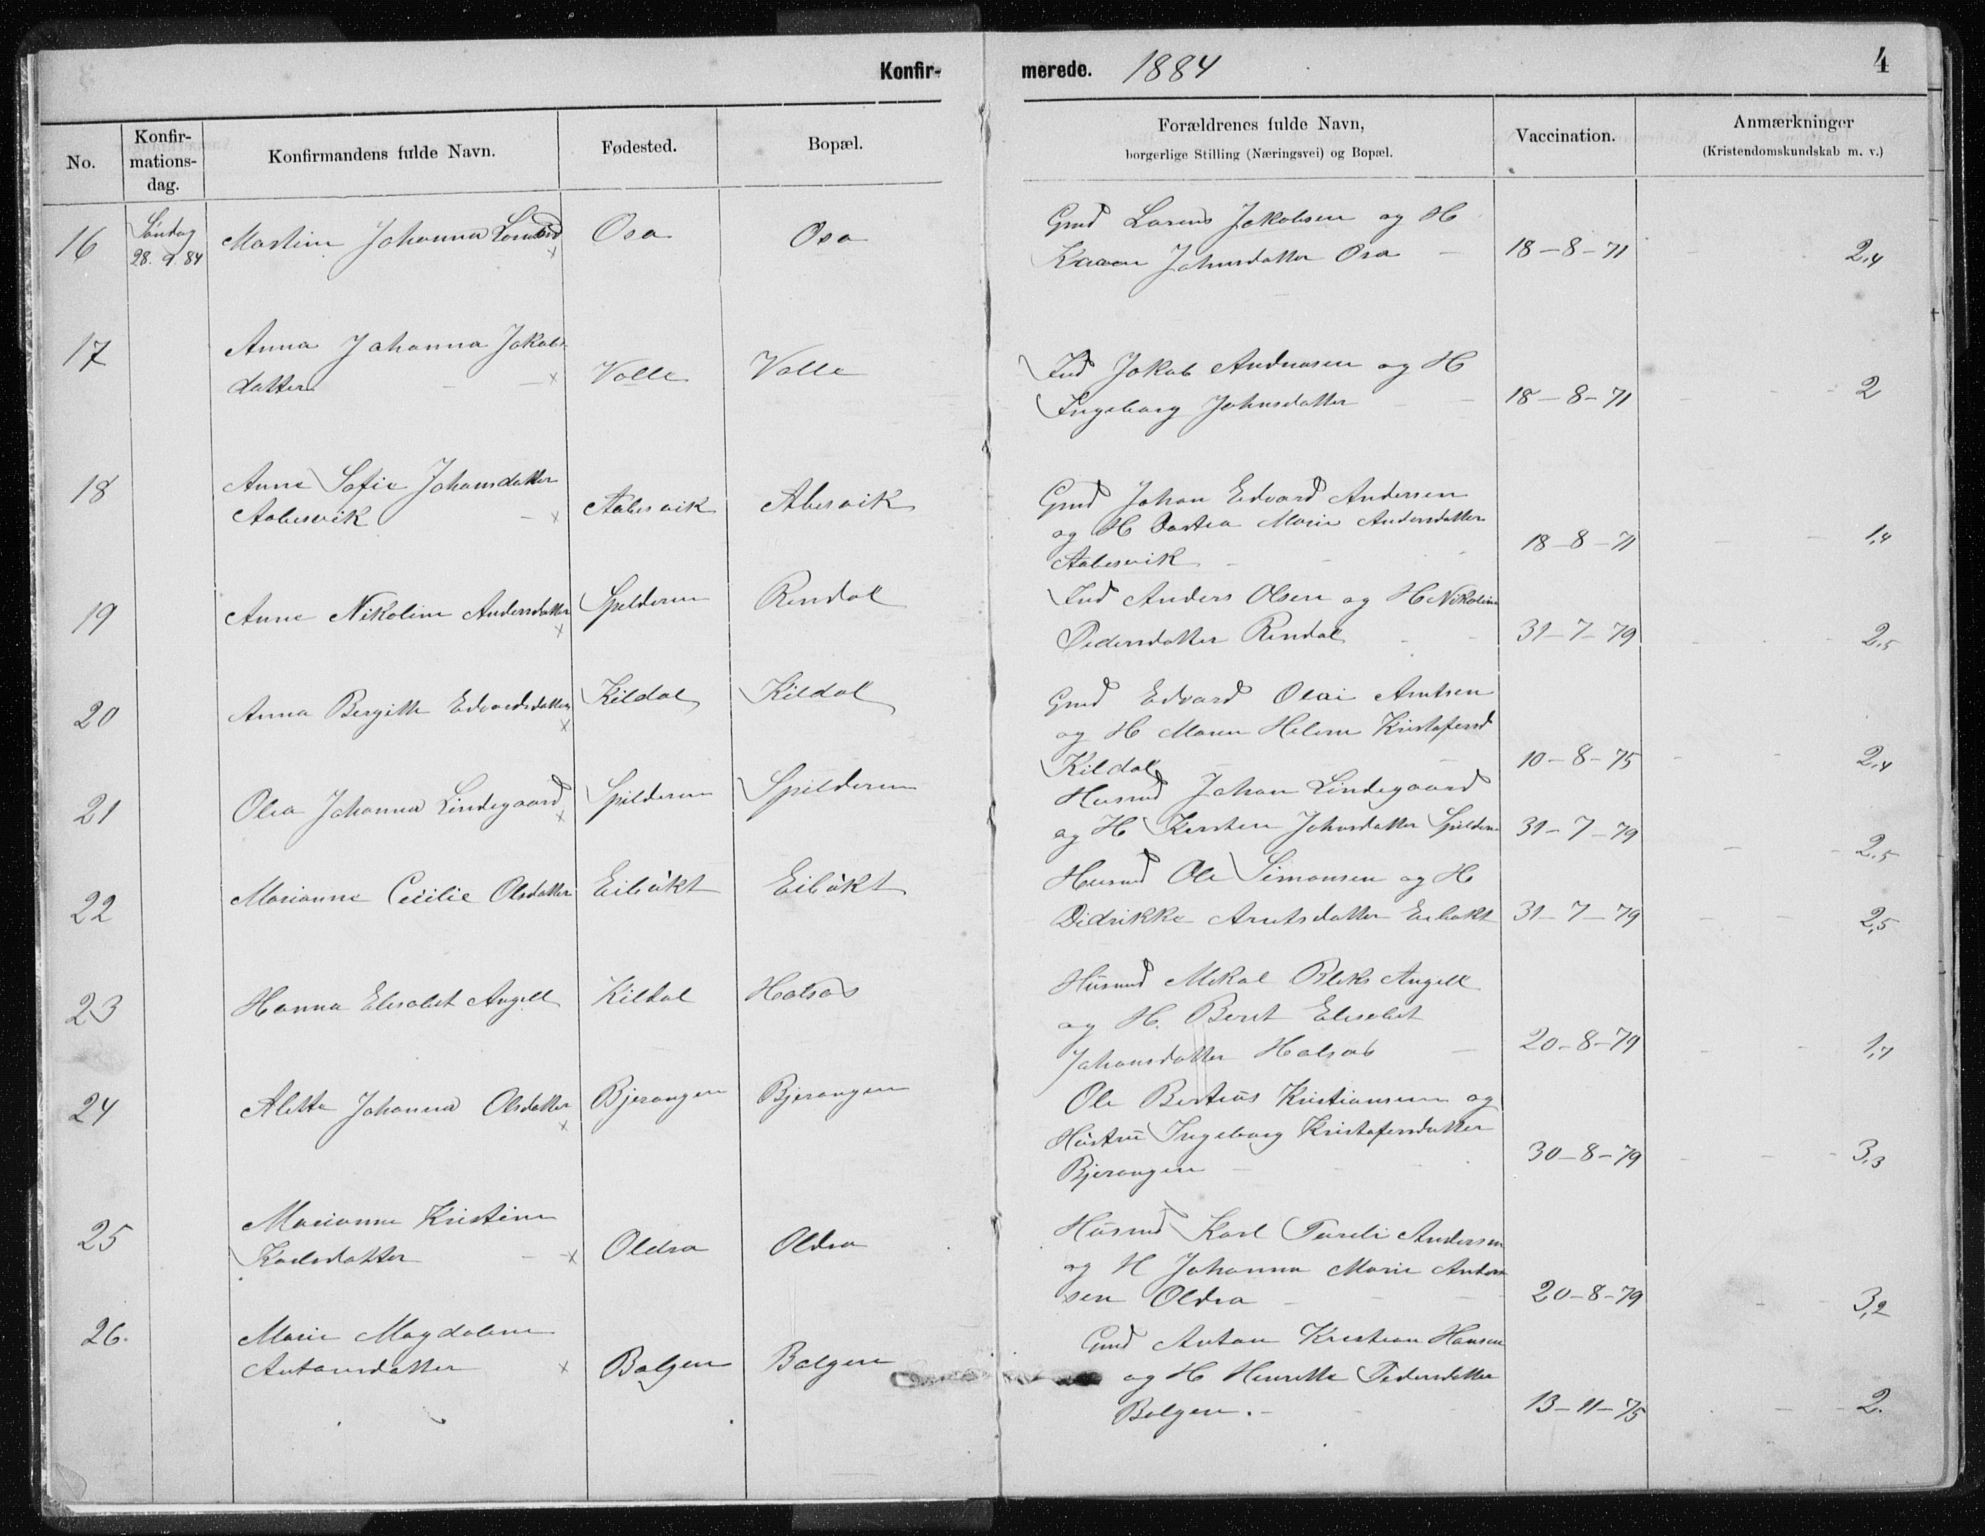 Konfir-
merede. 1884
4
No.
Konfir-
mations-
dag.
Konfirmandens fulde Navn.
Fødested.
Bopæl.
Forældrenes fulde Navn,
borgerlige Stilling (Næringsvei) og Bopæl.
Vaccination.
Anmærkninger
(Kristendomskundskab m. v.)
16
Søndag
28. 9. 84
Martine Johanna
Osa
Osa
Grmd Lorens Jakobsen og H
Karen Johnsdatter Osa
18-8-71
2,4
17
Anna Johanna Jakobs
datter
Valle
Valle
Ind Jakob Andreasen og H
Ingeborg Johnsdatter
18-8-71
2
18
Anne Sofie Johansdatter
Aabesvik
Aabesvik
Abesvik
Grmd Johan Edvard Andersen
og H Dortea Marie Andersdatter
Aabesvik
18-8-71
1,4
19
Anne Nikoline Andersdatter
Spilderen
Rendal
Ind Anders Olsen og H Nikoline
Pedersdatter Rendal
31-7-79
2,5
20
Anna Bergitte Edvardsdatter
Kildal
Kildal
Grmd Edvard Olai Arntsen
og H Maren Helene Kristofersd
Kildal
10-8-75
2,4
21
Olea Johanna Lindegaard
Spilderen
Spilderen
Husmd Johan Lindegaard
og H Kirsten Johnsdatter Spildern
31-7-79
2,5
22
Marianne Cecilie Olsdatter
Eibukt
Eibukt
Husmd Ole Simonsen og H
Didrikke Arntsdatter Eibukt
31-7-79
2,5
23
Hanna Elisabet Angell
Kildal
Halsas
Husmd Mikal Bleks Angell
og H. Berit Elisabet
Johansdatter Halsas
20-8-79
1,7
24
Alette Johanna Olsdatter
Bjerangen
Bjerangen
Ole Berteus Kristiansen og
Hustru Ingeborg Kristofersdatter
Bjerangen
30-8-79
3,3
25
Marianne Kristine
Karlsdatter
Oldra
Oldra
Husmd Karl Andersen
og H Johanna Marie Ander
sen Oldra
20-8-79
3,2
26.
Marie Magdalene
Antonsdatter
Bolgen
Bolgen
Grmd Anton Kristian Hansen
og H Henrette Pedersdatter
Bolgen.
13-11-75
2.